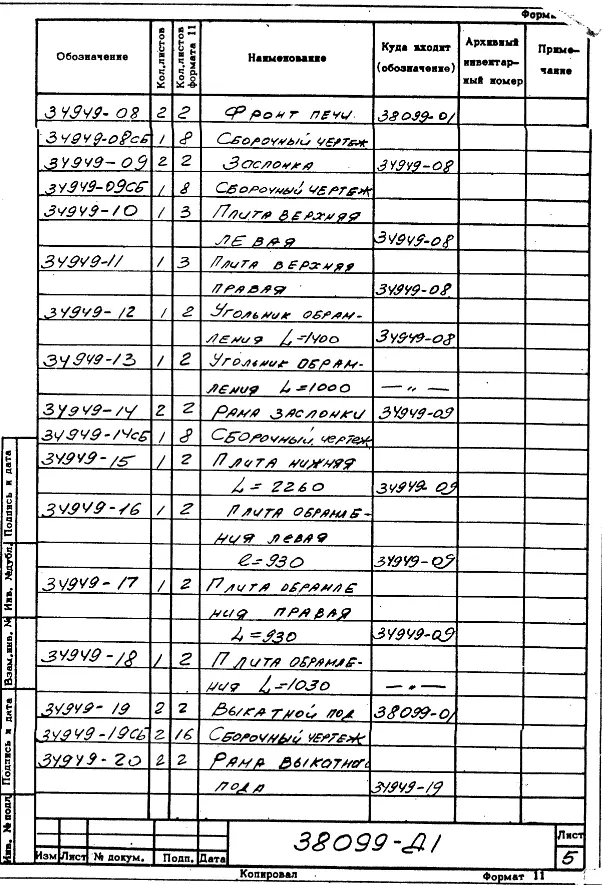 Форм
Обозначение Кол.листов Кол.листов формата 11 Наименование Куда входит (обозначение) Архивный инвентарный номер Примечание
34949-08 2 2 Фронт печи 38099-01
34949-08СБ 1 8 Сборочный чертеж
34949-09 2 2 Заслонка 34949-08
34949-09СБ 1 8 Сборочный чертеж
34949-10 1 3 Плита верхняя
левая 34949-08
34949-11 1 3 Плита верхняя
правая 34949-08
34949-12 1 2 Угольник обрам-
ления L=1400 34949-08
34949-13 1 2 Угольник обрам-
ления L=1000 — „ —
34949-14 2 2 Рама заслонки 34949-09
34949-14СБ 1 8 Сборочный чертеж
34949-15 1 2 Плита нижняя
L=2260 34949-09
34949-16 1 2 Плита обрамле-
ния левая
l=930 34949-09
34949-17 1 2 Плита обрамле
ния правая
L=930 34949-09
34949-18 1 2 Плита обрамле-
ния L=1030 — „ —
34949-19 2 2 Выкатной под 38099-01
34949-19СБ 2 16 Сборочный чертеж
34949-20 2 2 Рама выкатного
пода 34949-19
Инв. № подл. Подпись и дата Взам.инв. № Инв. № дубл. Подпись и дата
38099-Д1
Лист
5
Изм Лист № докум. Подп. Дата
Копировал Формат 11